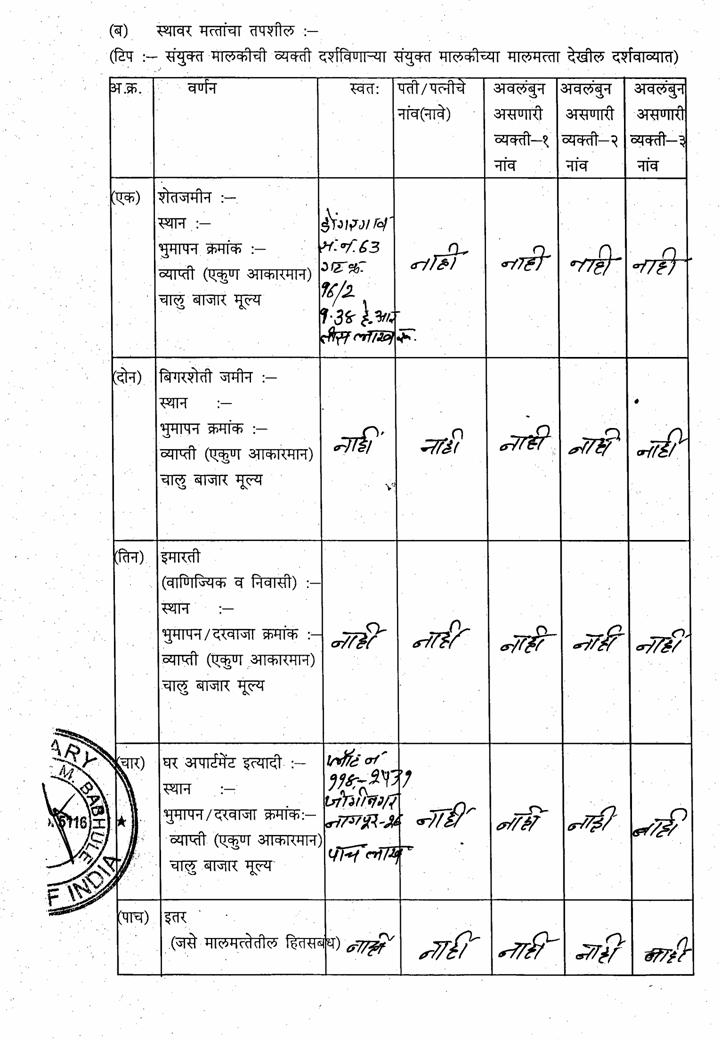 (ब) स्थावर मत्तांचा तपशील :–
(टिप :– संयुक्त मालकीची व्यक्ती दर्शविणाऱ्या संयुक्त मालकीच्या मालमत्ता देखील दर्शवाव्यात)
अ.क्र. वर्णन स्वत: पती/पत्नीचे नांव(नावे) अवलंबुन असणारी व्यक्ती–१ नांव अवलंबुन असणारी व्यक्ती–२ नांव अवलंबुन असणारी व्यक्ती–३ नांव
(एक) शेतजमीन :–
स्थान :– डोंगरगाव
भुमापन क्रमांक :– न. 63 नाही नाही नाही नाही
व्याप्ती (एकुण आकारमान) गट क्र.
चालु बाजार मूल्य 96/2
१.३४ हे.आर
तीस लाख रू.
(दोन) बिगरशेती जमीन :–
स्थान :–
भुमापन क्रमांक :–
व्याप्ती (एकुण आकारमान) नाही नाही नाही नाही नाही
चालु बाजार मूल्य
(तिन) इमारती
(वाणिज्यिक व निवासी) :–
स्थान :–
भुमापन/दरवाजा क्रमांक :– नाही नाही नाही नाही नाही
व्याप्ती (एकुण आकारमान)
चालु बाजार मूल्य
(चार) घर अपार्टमेंट इत्यादी :– प्लॉट नं
स्थान :– जोगीनगर
भुमापन/दरवाजा क्रमांक:– नागपूर-२६ नाही नाही नाही नाही
व्याप्ती (एकुण आकारमान) पाच लाख
चालु बाजार मूल्य
ARY
M. BABHULE
6116
★
F INDIA
(पाच) इतर
(जसे मालमत्तेतील हितसबंध) नाही नाही नाही नाही नाही